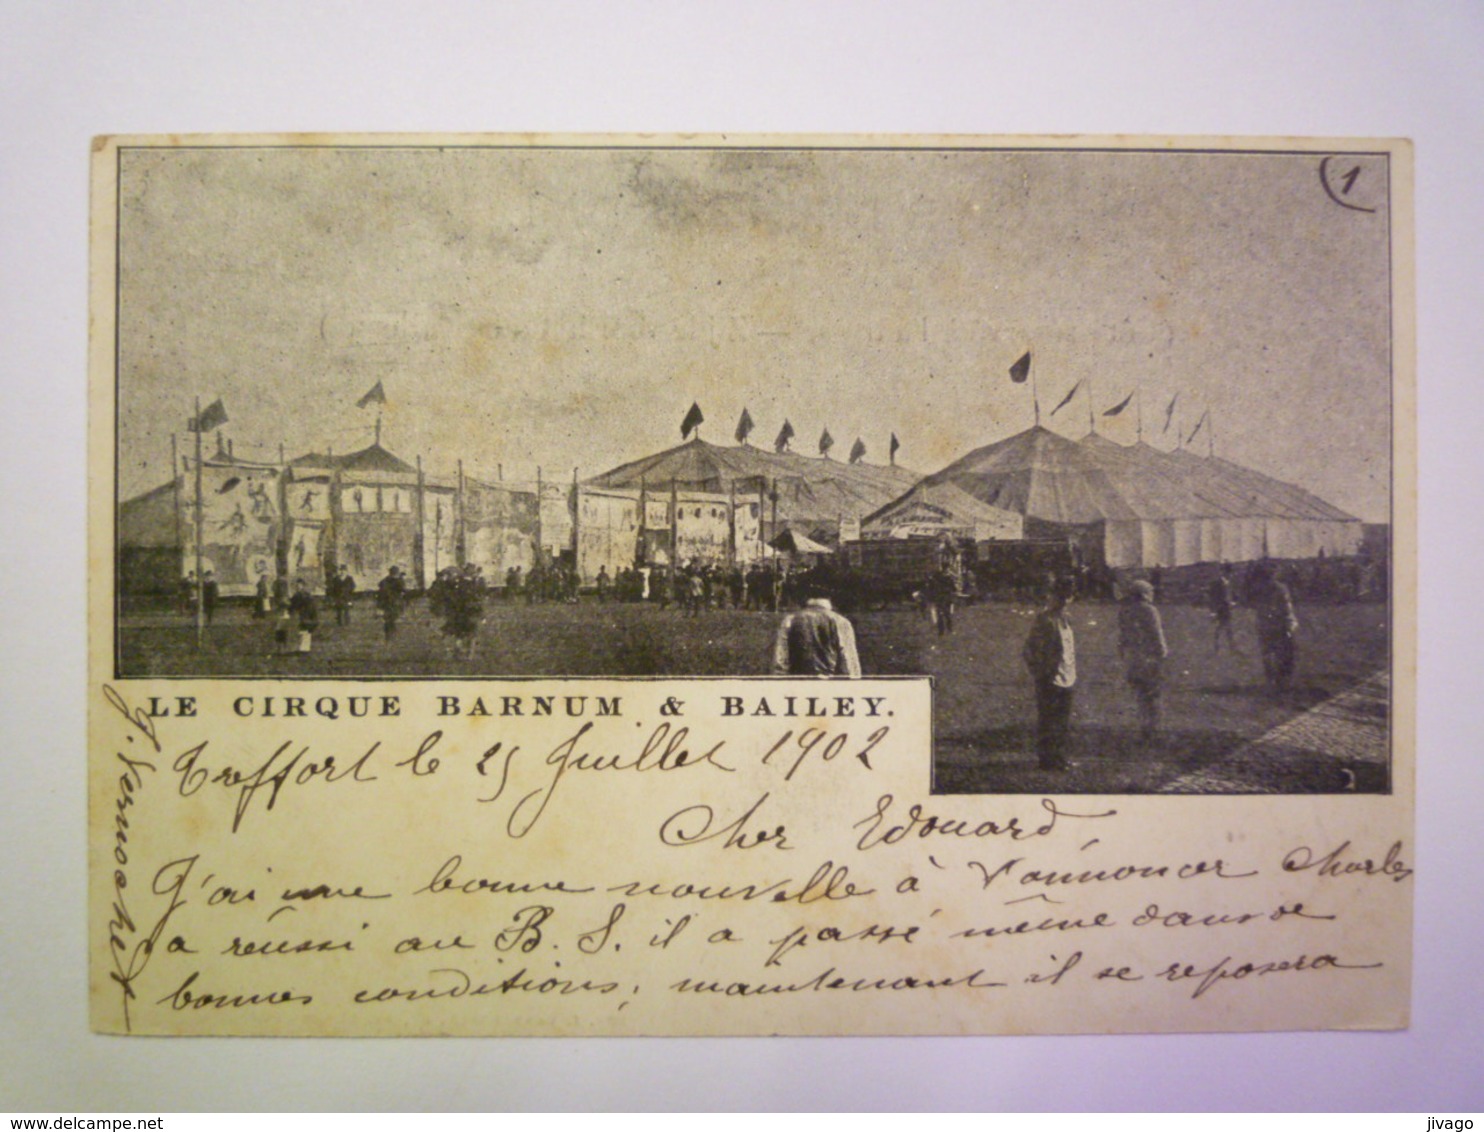 1
LE CIRQUE BARNUM & BAILEY.
2
Treffort le 25 Juillet 1902
Cher Edouard,
J'ai une bonne nouvelle à t'annoncer Charles
a réussi au B. S. il a passé même dans de
bonnes conditions; maintenant il se reposera
www.delcampe.net
jivago